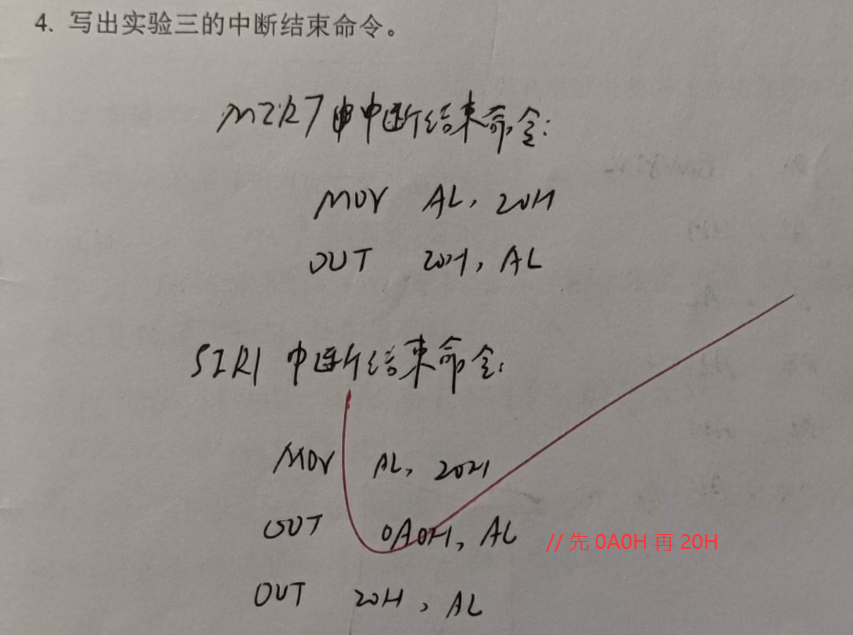 4. 写出实验三的中断结束命令。
MIR7 中断结束命令:
MOV AL, 20H
OUT 20H, AL
SIR1 中断结束命令:
MOV AL, 20H
OUT 0A0H, AL // 先 0A0H 再 20H
OUT 20H, AL